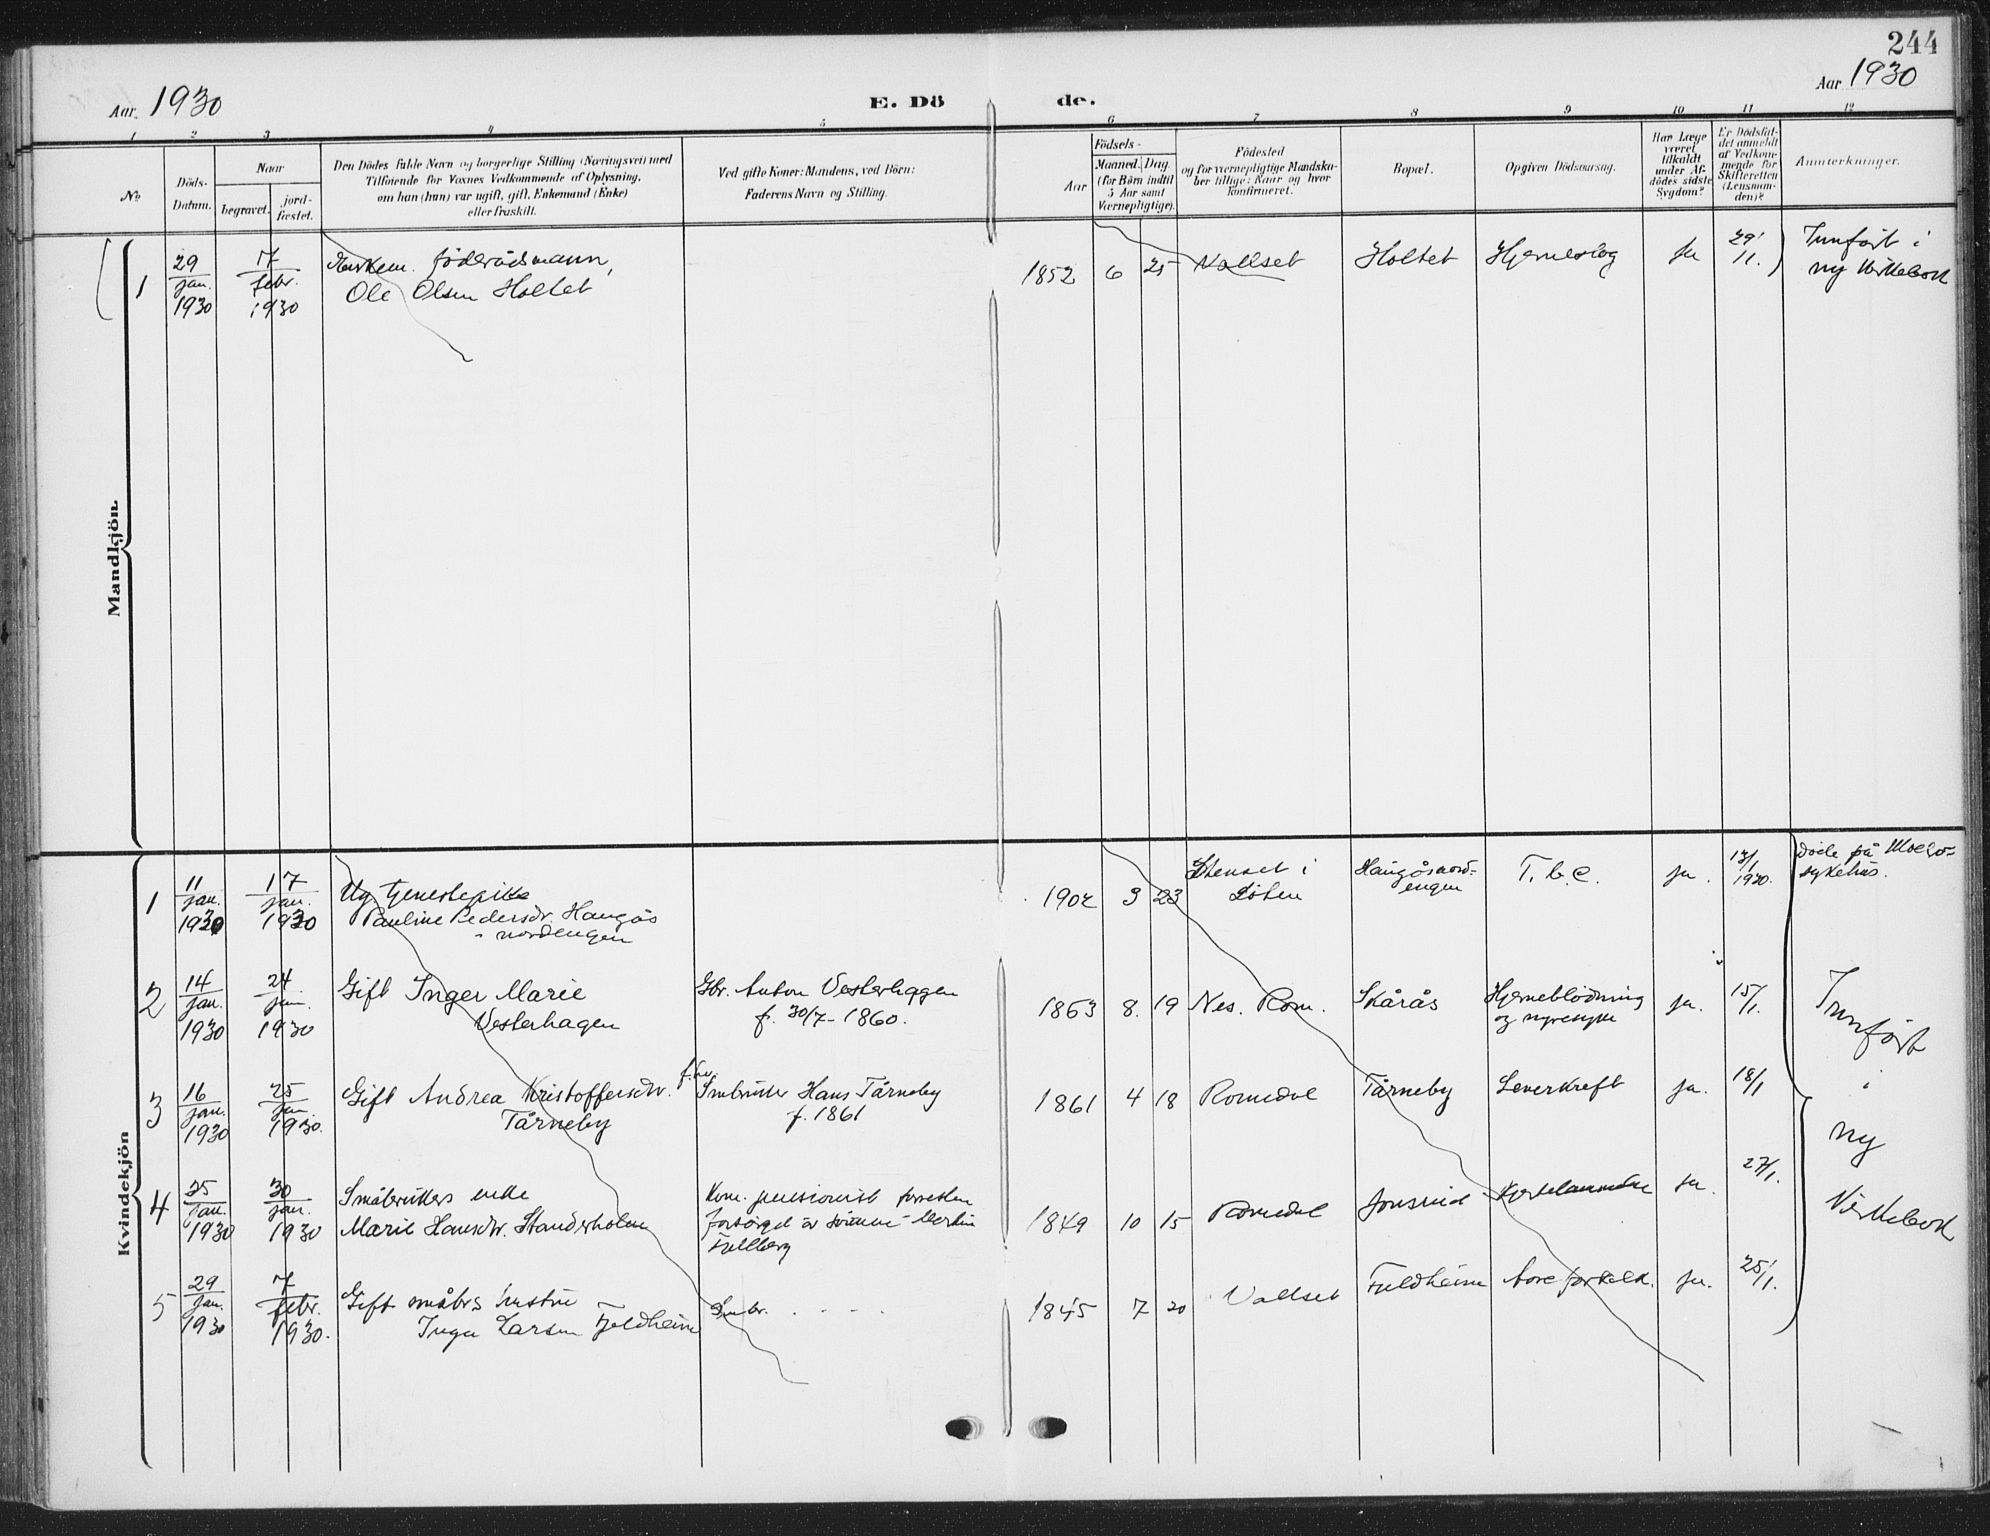 244
Aar 1930
E. Dö de.
Aar 1930
1 2 3 4 5 6 7 8 9 10 11 12
No
Döds-
Datum.
Naar
begravet.
jord-
fæstet.
Den Dödes fulde Navn og borgerlige Stilling (Næringsvei) med
Tilföiende for Voxnes Vedkommende af Oplysning,
om han (hun) var ugift, gift, Enkemand (Enke)
eller fraskilt.
Ved gifte Koner: Mandens, ved Börn:
Faderens Navn og Stilling.
Födsels-
Aar
Maaned. Dag.
(for Börn indtil
5 Aar samt
Værnepligtige).
Födested
og for værnepligtige Mandska-
ber tillige: Naar og hvor
konfirmeret.
Bopæl.
Opgiven Dödsaarsag.
Har Læge
været
tilkaldt
under Af-
dödes sidste
Sygdom?
Er Dödsfal-
det anmeldt
af Vedkom-
mende for
Skifteretten
(Lensman-
den)?
Anmerkninger.
Mandkjön.
1 29 jan. 1930 7 febr. 1930
föderådsmann,
Ole Olsen Holtet
1852 6 25 Vallset Holtet Hjerneslag ja 29/1.
Innfört i
ny kirkebok
Kvindekjön
1 11 jan. 1930 17 jan. 1930
Ug. tjenestepike
Pauline Pedersdr. Haugås
nordengen
1902 3 23
i
Löten
Haugåsnord-
engen
T.b.c. ja. 13/1 1930.
Döde på
sykehus.
2 14 jan. 1930 24 jan. 1930
Gift Inger Marie
Vesterhagen
Gbr. Anton Vesterhagen
f. 30/7-1860.
1863 8. 19 Nes. Rom. Skårås
Hjerneblödning
og nyresyke
ja. 15/1.
3 16 jan. 1930 25 jan. 1930.
Gift Andrea Kristoffersdr.
Tårneby
Smbruker Hans Tårneby
f. 1861
1861 4 18 Romedal Tårneby Leverkreft ja. 18/1
4 25 jan. 1930 30 jan. 1930
Småbrukers enke
Marie Hansdr. Standerholen
Kom. pensionist forresten
forsörget av sönnen Martin
Fjellberg
1849 10 15 Romedal Jonsrud ja. 27/1.
5 29 jan. 1930 7 febr. 1930.
Gift småbrs hustru
Inga Larsen Fjeldheim
Smbr. - - -
1845 7 20 Vallset Fjeldheim Åreforkalk. ja. 25/1.
Innfört
i
ny
Kirkebok